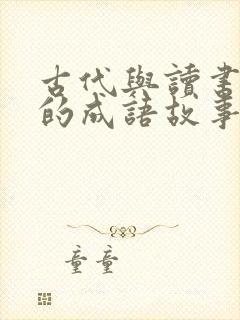 古代與讀書
的成語故事
童童